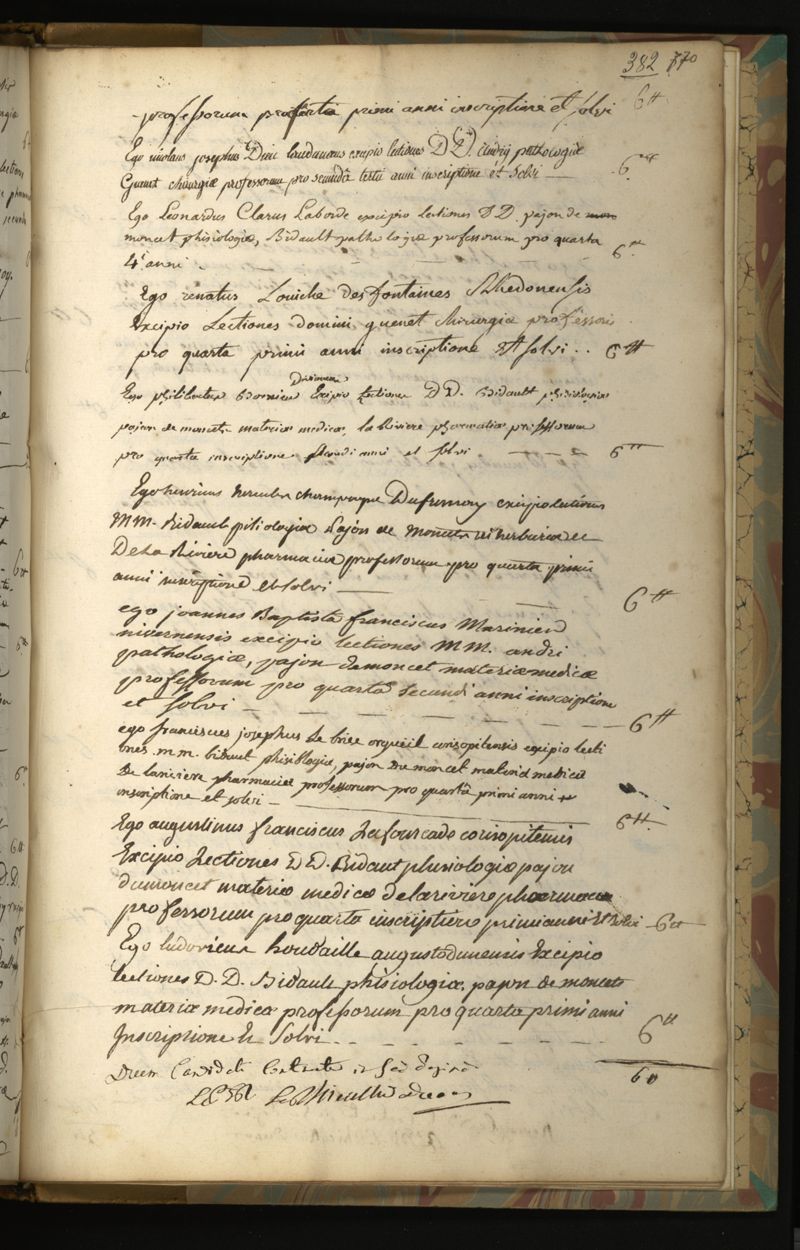 382 770
professorum pro quarta primi anni inscriptione et solvi 6tt
Ego nicolaus josephus laudunaeus excipio lectiones D D. andry pathologiæ
Guenet chirurgiæ professorum pro secunda tertii anni inscriptione et solvi — 6tt
Ego Leonardus Clarus Laborde excipio lectiones D D. pajon de
moncet phisiologiæ, Bidault pathologiæ professorum pro quarta
4i anni 6tt
Ego renatus Louiche desfontaines Rhedonensis
Excipio Lectiones domini guenet chirurgiæ professoris
pro quarta primi anni inscriptione et solvi .. 6tt
Divionensis
Ego philibertus Excipio Lectiones D D. Bidault phisiologiæ
pajon de moncets materiæ medicæ, la Riviere pharmaciæ professorum
pro quarta inscriptione secundi anni et solvi 6tt
Ego henricus hercules champagne Dufresnay excipio lectiones
MM. bidault phisiologiæ Pajon de Moncets rei herbariæ et
De La Riviere pharmaciæ professorum pro quarta primi
anni inscriptione et solvi — 6tt
ego joannes Baptista franciscus Marinier
nivernensis excipio lectiones MM. andri
pathologiæ, pajon demoncet materiæ medicæ
professorum pro quarta secundi anni inscriptione
et solvi — 6tt
ego franciscus josephus le briee orgueil corisopitensis excipio lecti
ones. m.m. bidaut phisiologiæ, pajon De moncet materiæ medicæ
De lariviere pharmaciæ professorum pro quarta primi anni
inscriptione et solvi — 6tt
Ego augustinus franciscus Lafourcade corisopitensis
Excipio Lectiones D D. Bidaut phisiologiæ pajon
dumoncet materiæ medicæ delariviere pharmaciæ
professorum pro quarta inscriptione primi anni et solvi — 6tt
Ego ludovicus houdaille augustodunensis Excipio
lectiones D. D. Bidault phisiologiæ, pajon de moncets
materiæ medicæ professorum pro quarta primi anni
Inscriptione et Solvi 6tt
60